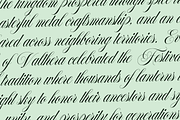 the kingdom prospered through specia
asteful metal craftsmanship, and an a
ward across neighboring territories. Ev
of Valthera celebrated the Festival
tradition where thousands of lanterns
ight sky to honor their ancestors and sy
unity and prosperity for generation